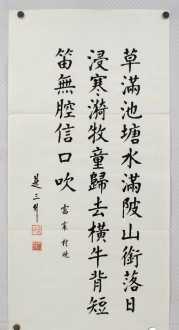 草滿池塘水滿陂山銜落日
浸寒漪牧童歸去橫牛背短
笛無腔信口吹
雷震村晚